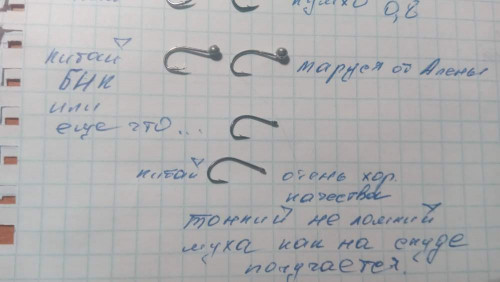 пумхо 0,8
китай
БНК
или
еще что...
маруся от Алены
китай
очень хор.
качества
тонкий не ломкий
муха как на скуде
получается.